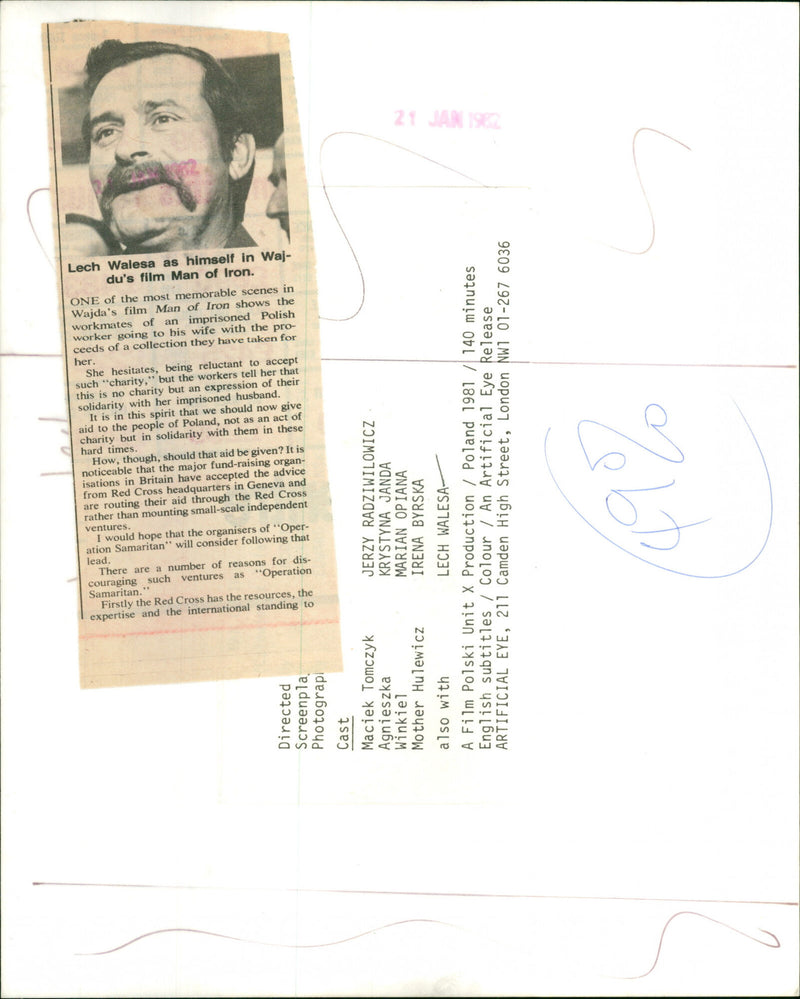 21 JAN 1982
Lech Walesa as himself in Waj-
du's film Man of Iron.
ONE of the most memorable scenes in
Wajda's film Man of Iron shows the
workmates of an imprisoned Polish
worker going to his wife with the pro-
ceeds of a collection they have taken for
her.
She hesitates, being reluctant to accept
such "charity," but the workers tell her that
this is no charity but an expression of their
solidarity with her imprisoned husband.
It is in this spirit that we should now give
aid to the people of Poland, not as an act of
charity but in solidarity with them in these
hard times.
How, though, should that aid be given? It is
noticeable that the major fund-raising organ-
isations in Britain have accepted the advice
from Red Cross headquarters in Geneva and
are routing their aid through the Red Cross
rather than mounting small-scale independent
ventures.
I would hope that the organisers of "Oper-
ation Samaritan" will consider following that
lead.
There are a number of reasons for dis-
couraging such ventures as "Operation
Samaritan."
Firstly the Red Cross has the resources, the
expertise and the international standing to
Directed
Screenpla
Photograp
Cast
Maciek Tomczyk JERZY RADZIWILOWICZ
Agnieszka KRYSTYNA JANDA
Winkiel MARIAN OPIANA
Mother Hulewicz IRENA BYRSKA
also with LECH WALESA
A Film Polski Unit X Production / Poland 1981 / 140 minutes
English subtitles / Colour / An Artificial Eye Release
ARTIFICIAL EYE, 211 Camden High Street, London NW1 01-267 6036
49%